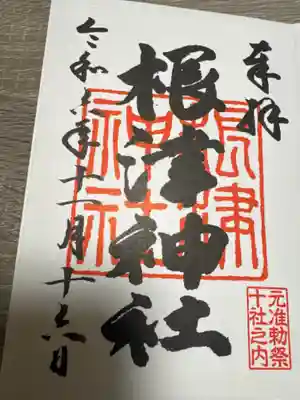 奉拝
根津神社
根津神社
元准勅祭
十社之内
令和六年十一月十六日